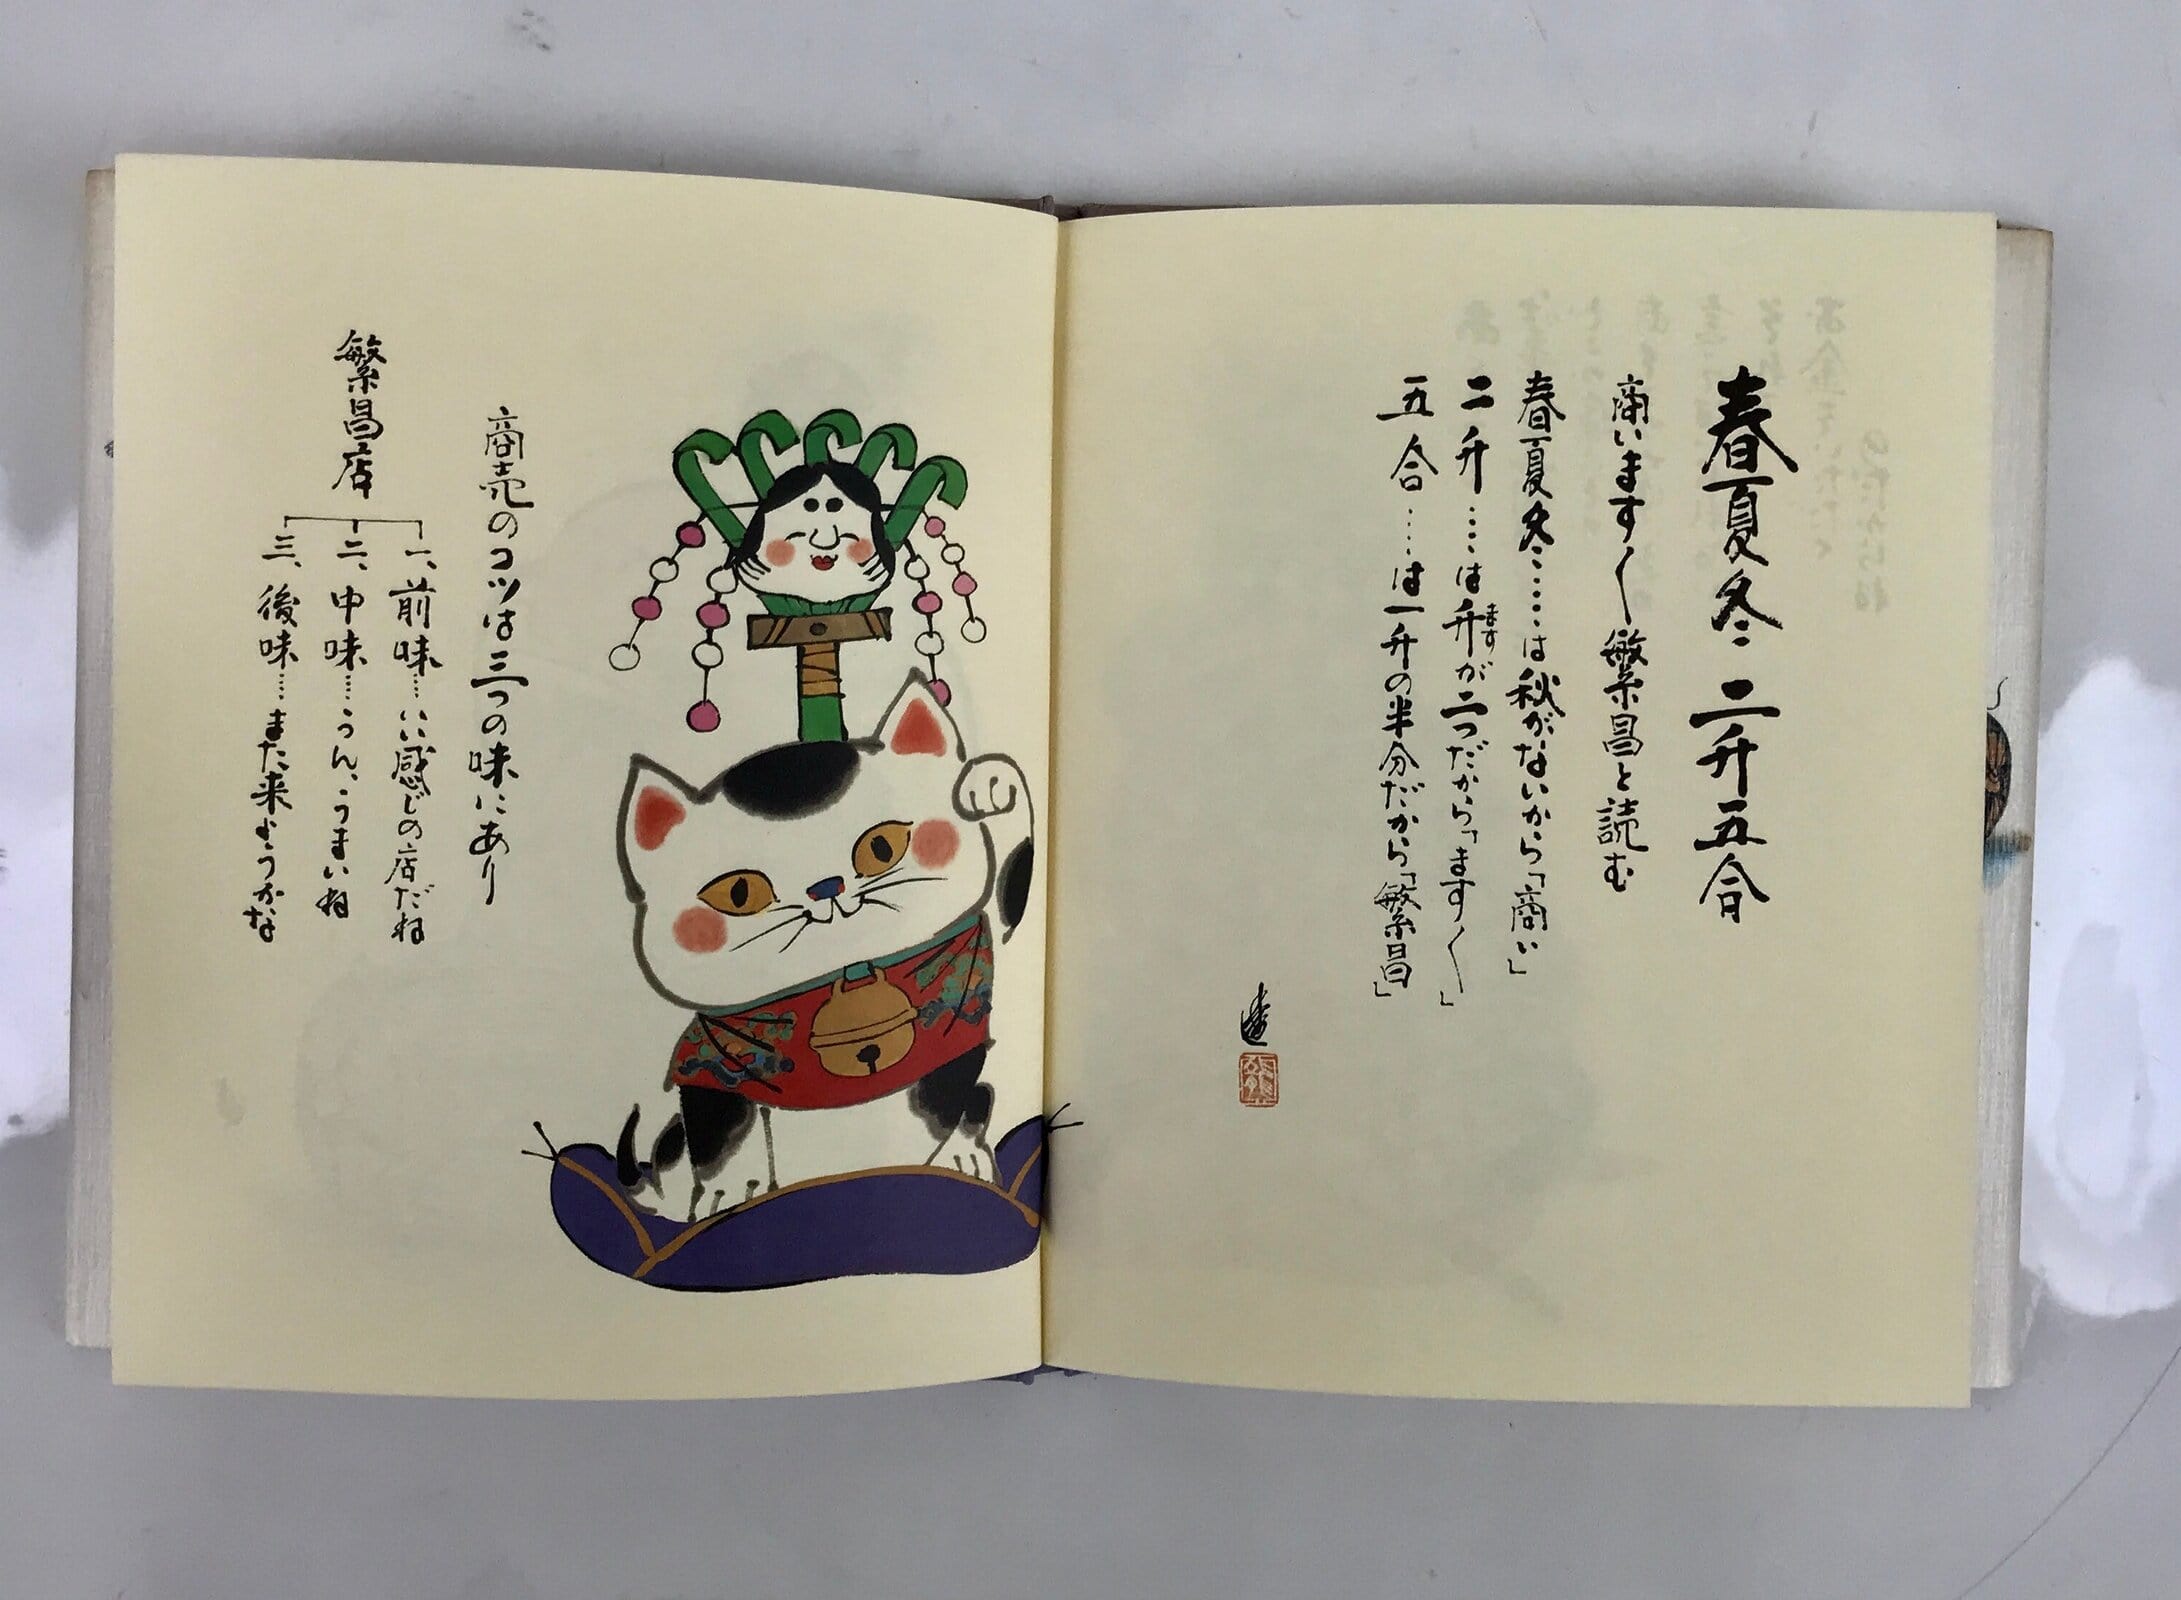 春夏冬 二升五合
商います〱繁昌と読む
春夏冬……は秋がないから「商い」
二升……は升ますが二つだから「ます〱」
五合……は一升の半分だから「繁昌」
商売のコツは三つの味にあり
繁昌店
一、前味……いい感じの店だね
二、中味……うん、うまいね
三、後味……また来ようかな